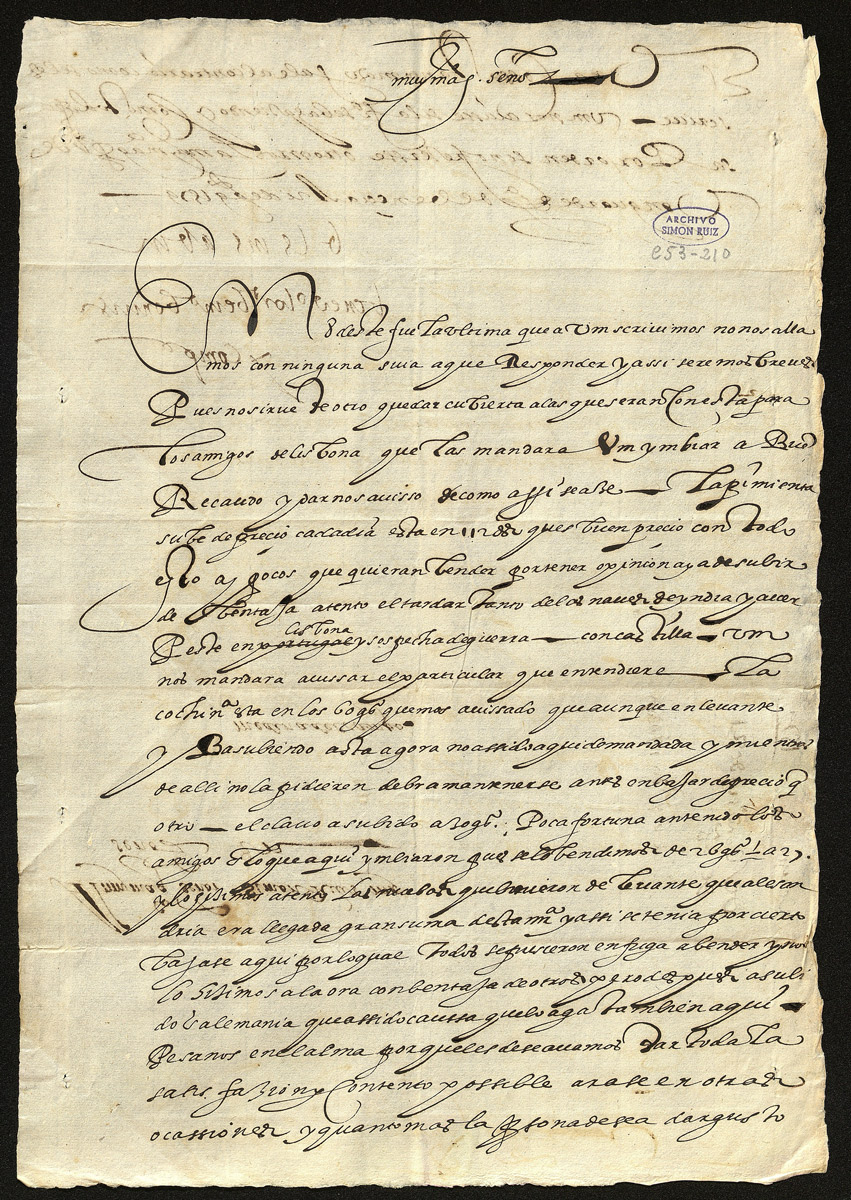 muy mag. señor
ARCHIVO
SIMON RUIZ
C53-210
8 deste fue la ultima que a Vm scrivimos no nos alla
mos con ninguna suia a que Responder y assi seremos breves
Pues no sirve de otro que dar cubierta a las que seran con esta para
los amigos de lisbona que las mandara Vm ymbiar a Buen
Recaudo y darnos avisso de como assi se aze — La pimienta
sube de precio cada dia esta en 112 ques buen precio con todo
esto ay pocos que quieran bender por tener opinion aya de subir
de bentaja atento el tardar tanto de las naves de yndia y aver
Peste en portugal lisbona y sospecha de guerra — con castilla — Vm
nos mandara avissar el particular que entendiere — La
cochina esta en los 60 que emos avissado que aunque en levante
y a subido asta agora no assido aqui demandada y mientras
de alli no la pidieren debra mantenerse antes en bajar de precio q
otro — el clavo a subido a 30 Poca fortuna an tenido los
amigos lo que aqui ymbiaron que se lo bendimos de 26 a 27
y lo hizimos atento las nuebas que binieron de levante que alesan
dria era llegada gran suma desta mª y assi se tenia por cierto
bajase aqui por lo qual todos se pusieron en fuga a bender y nos
lo hizimos a la ora con bentaja de otros pero despues a subi
do alemania que assido caussa que lo aga tambien aqui —
Pesanos en el alma porque les deseavamos dar toda la
satisfazion y contento possible arase en otras
ocassiones y quanto mas la persona desea dar gusto